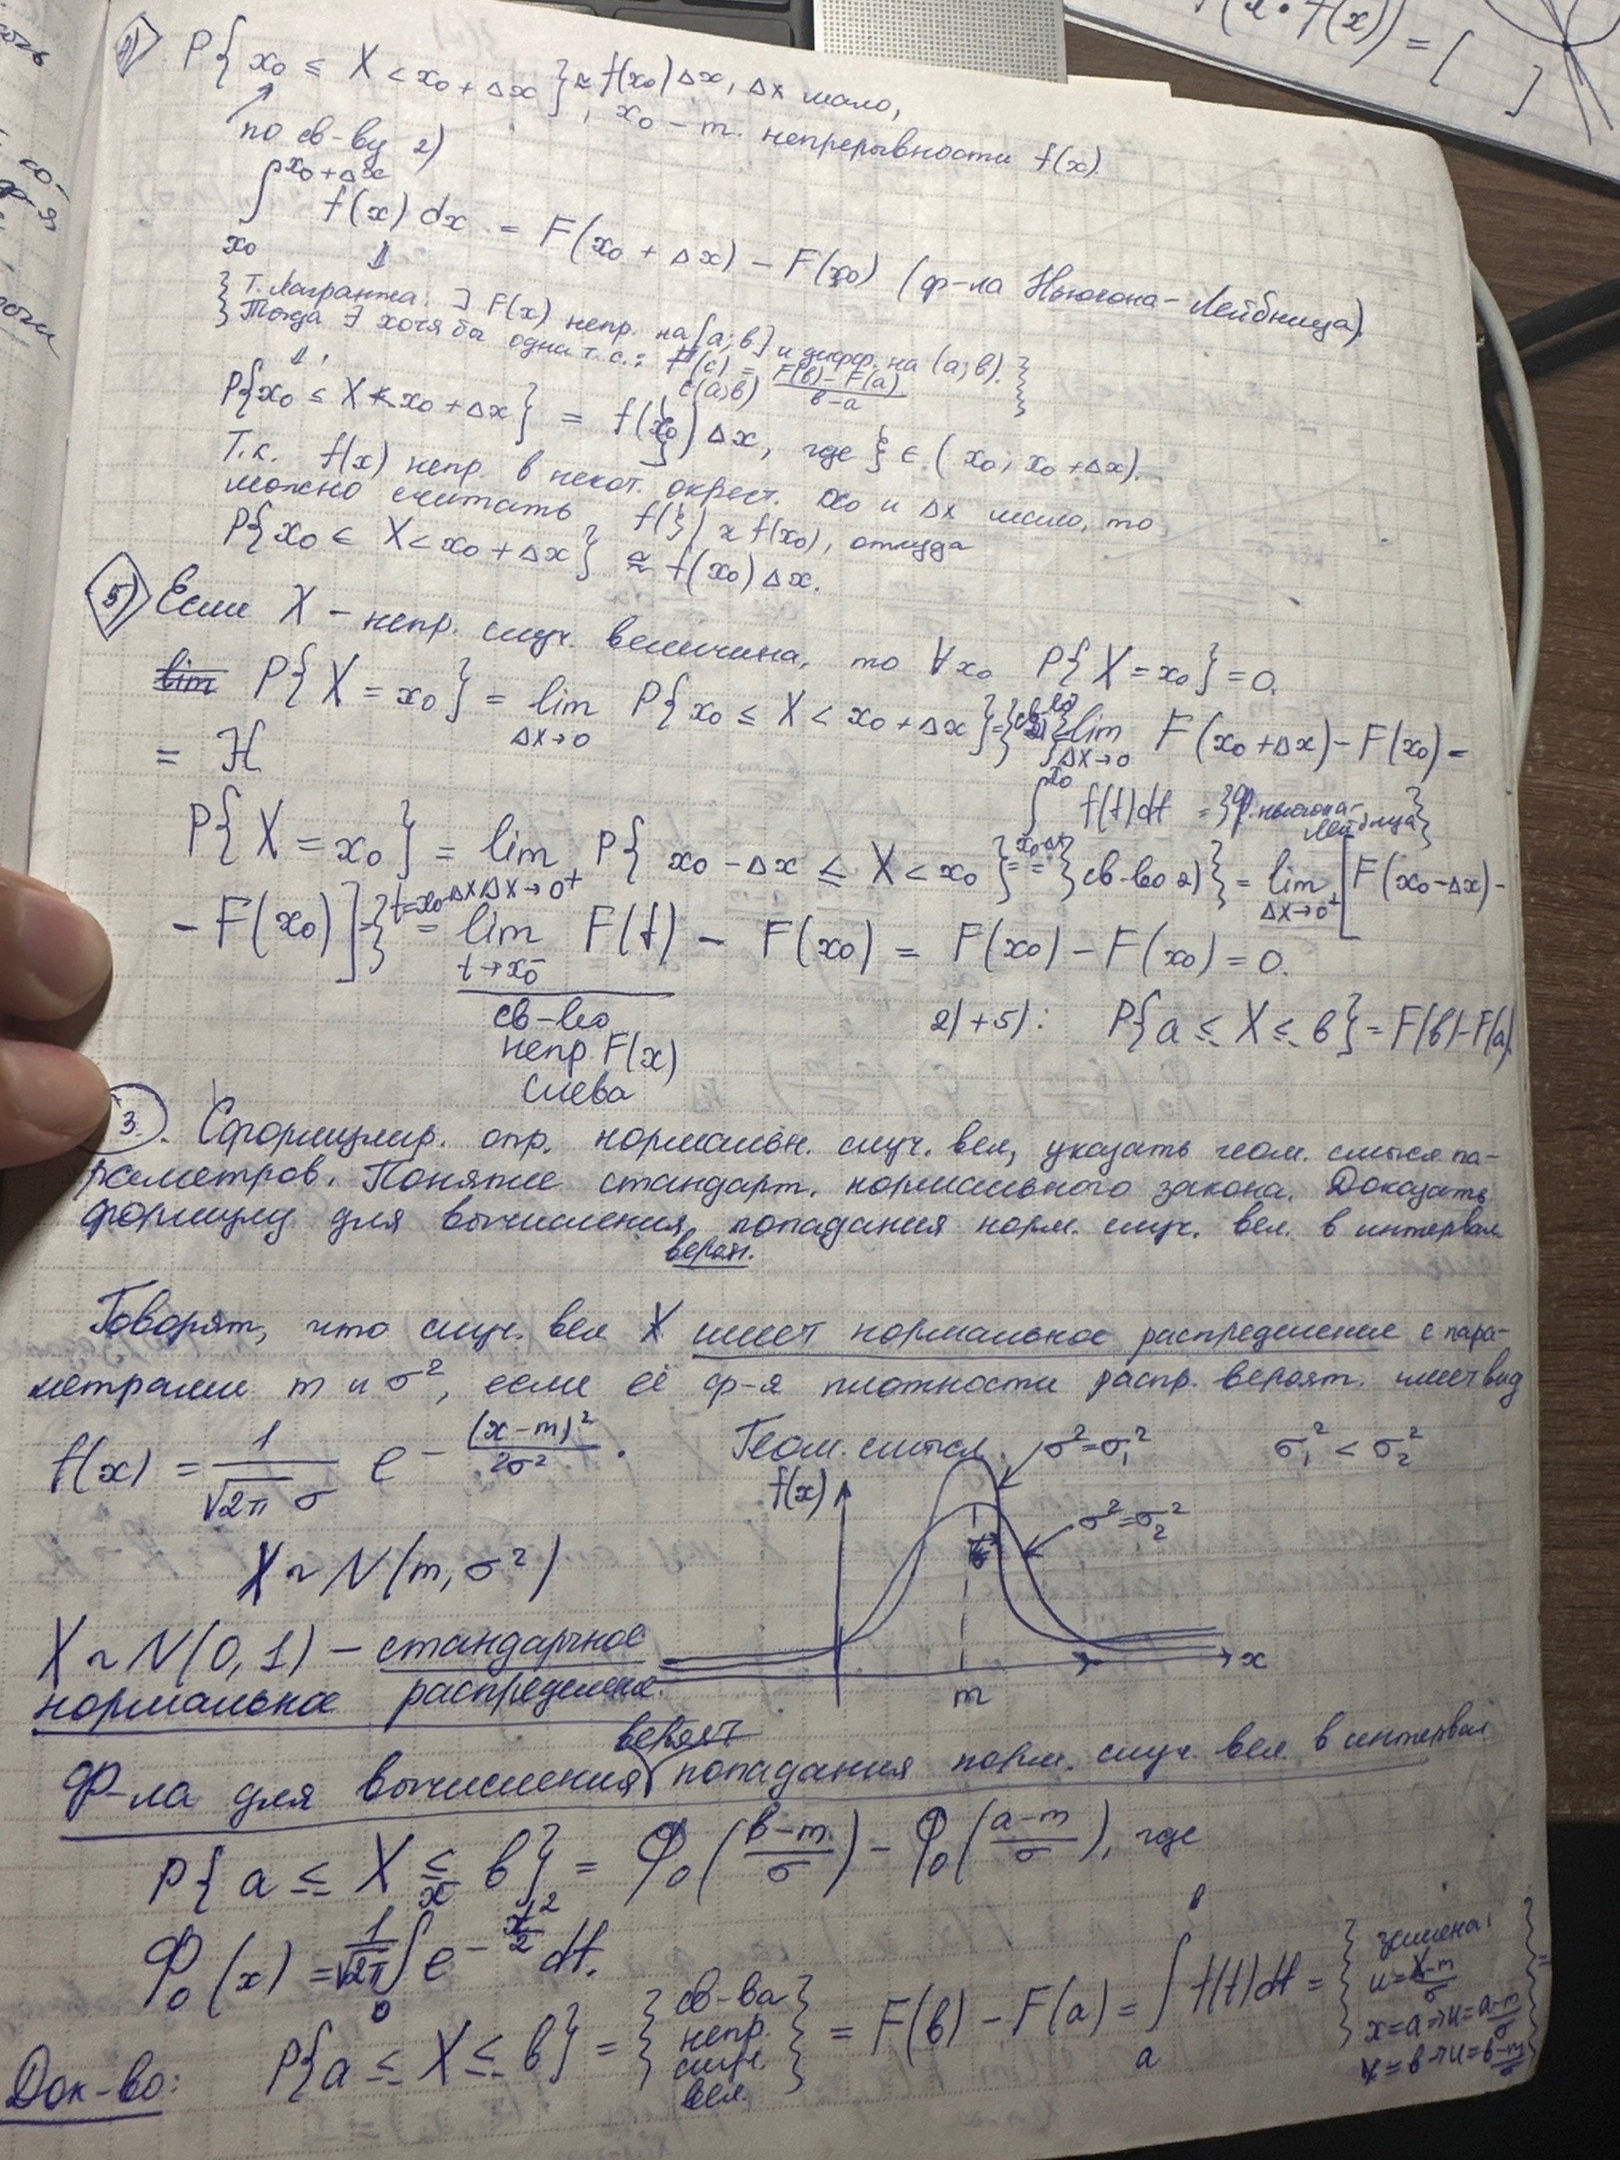 (x · f(x)) = [ ]
4) P{x₀ ≤ X < x₀ + Δx} ≈ f(x₀)Δx, Δx мало,
x₀ – т. непрерывности f(x).
по св-ву 2)
∫_{x₀}^{x₀+Δx} f(x)dx = F(x₀ + Δx) – F(x₀) (ф-ла Ньютона-Лейбница).
⇓
{ Т. Лагранжа: ∃ F(x) непр. на [a; b] и дифф. на (a; b).
Тогда ∃ хотя бы одна т. c.: F'(c) = (F(b) – F(a))/(b – a) }
c(a;b)
⇓
P{x₀ ≤ X < x₀ + Δx} = f(ξ)Δx, где ξ ∈ (x₀; x₀ + Δx).
Т.к. f(x) непр. в некот. окрест. x₀ и Δx мало, то
можно считать f(ξ) ≈ f(x₀), откуда
P{x₀ ≤ X < x₀ + Δx} ≈ f(x₀)Δx.
5) Если X – непр. случ. величина, то ∀x₀ P{X = x₀} = 0.
P{X = x₀} = lim_{Δx→0} P{x₀ ≤ X < x₀ + Δx} = {св-во 2)} lim_{Δx→0} F(x₀ + Δx) – F(x₀) =
=
∫_{x₀-Δx}^{x₀} f(t)dt = {ф. Ньютона-Лейбница}
P{X = x₀} = lim_{Δx→0⁺} P{x₀ – Δx ≤ X < x₀} = {св-во 2)} = lim_{Δx→0⁺} [F(x₀ – Δx) –
– F(x₀)] = {t = x₀ – Δx} = lim_{t→x₀⁻} F(t) – F(x₀) = F(x₀) – F(x₀) = 0.
св-во
непр. F(x)
слева
2) + 5): P{a ≤ X ≤ b} = F(b) – F(a).
3. Сформулир. опр. нормальн. случ. вел, указать геом. смысл па-
раметров. Понятие стандарт. нормального закона. Доказать
формулу для вычисления попадания норм. случ. вел. в интервал
вероят.
Говорят, что случ. вел X имеет нормальное распределение с пара-
метрами m и σ², если её ф-я плотности распр. вероят. имеет вид
f(x) = 1/(√2π σ) e^{– (x – m)²/2σ²}.
Геом. смысл.
σ² = σ₁²
σ₁² < σ₂²
f(x)
σ² = σ₂²
X ~ N(m, σ²)
x
m
X ~ N(0, 1) – стандартное
нормальное распределение.
вероят
Ф-ла для вычисления попадания норм. случ. вел. в интервал
P{a ≤ X ≤ b} = Φ₀((b – m)/σ) – Φ₀((a – m)/σ), где
Φ₀(x) = 1/√2π ∫_0^x e^{– x²/2} dt.
Док-во: P{a ≤ X ≤ b} = {св-ва непр. случ. вел.} = F(b) – F(a) = ∫_a^b f(t)dt = {замена: u = (x – m)/σ
x = a → u = (a – m)/σ
x = b → u = (b – m)/σ} =